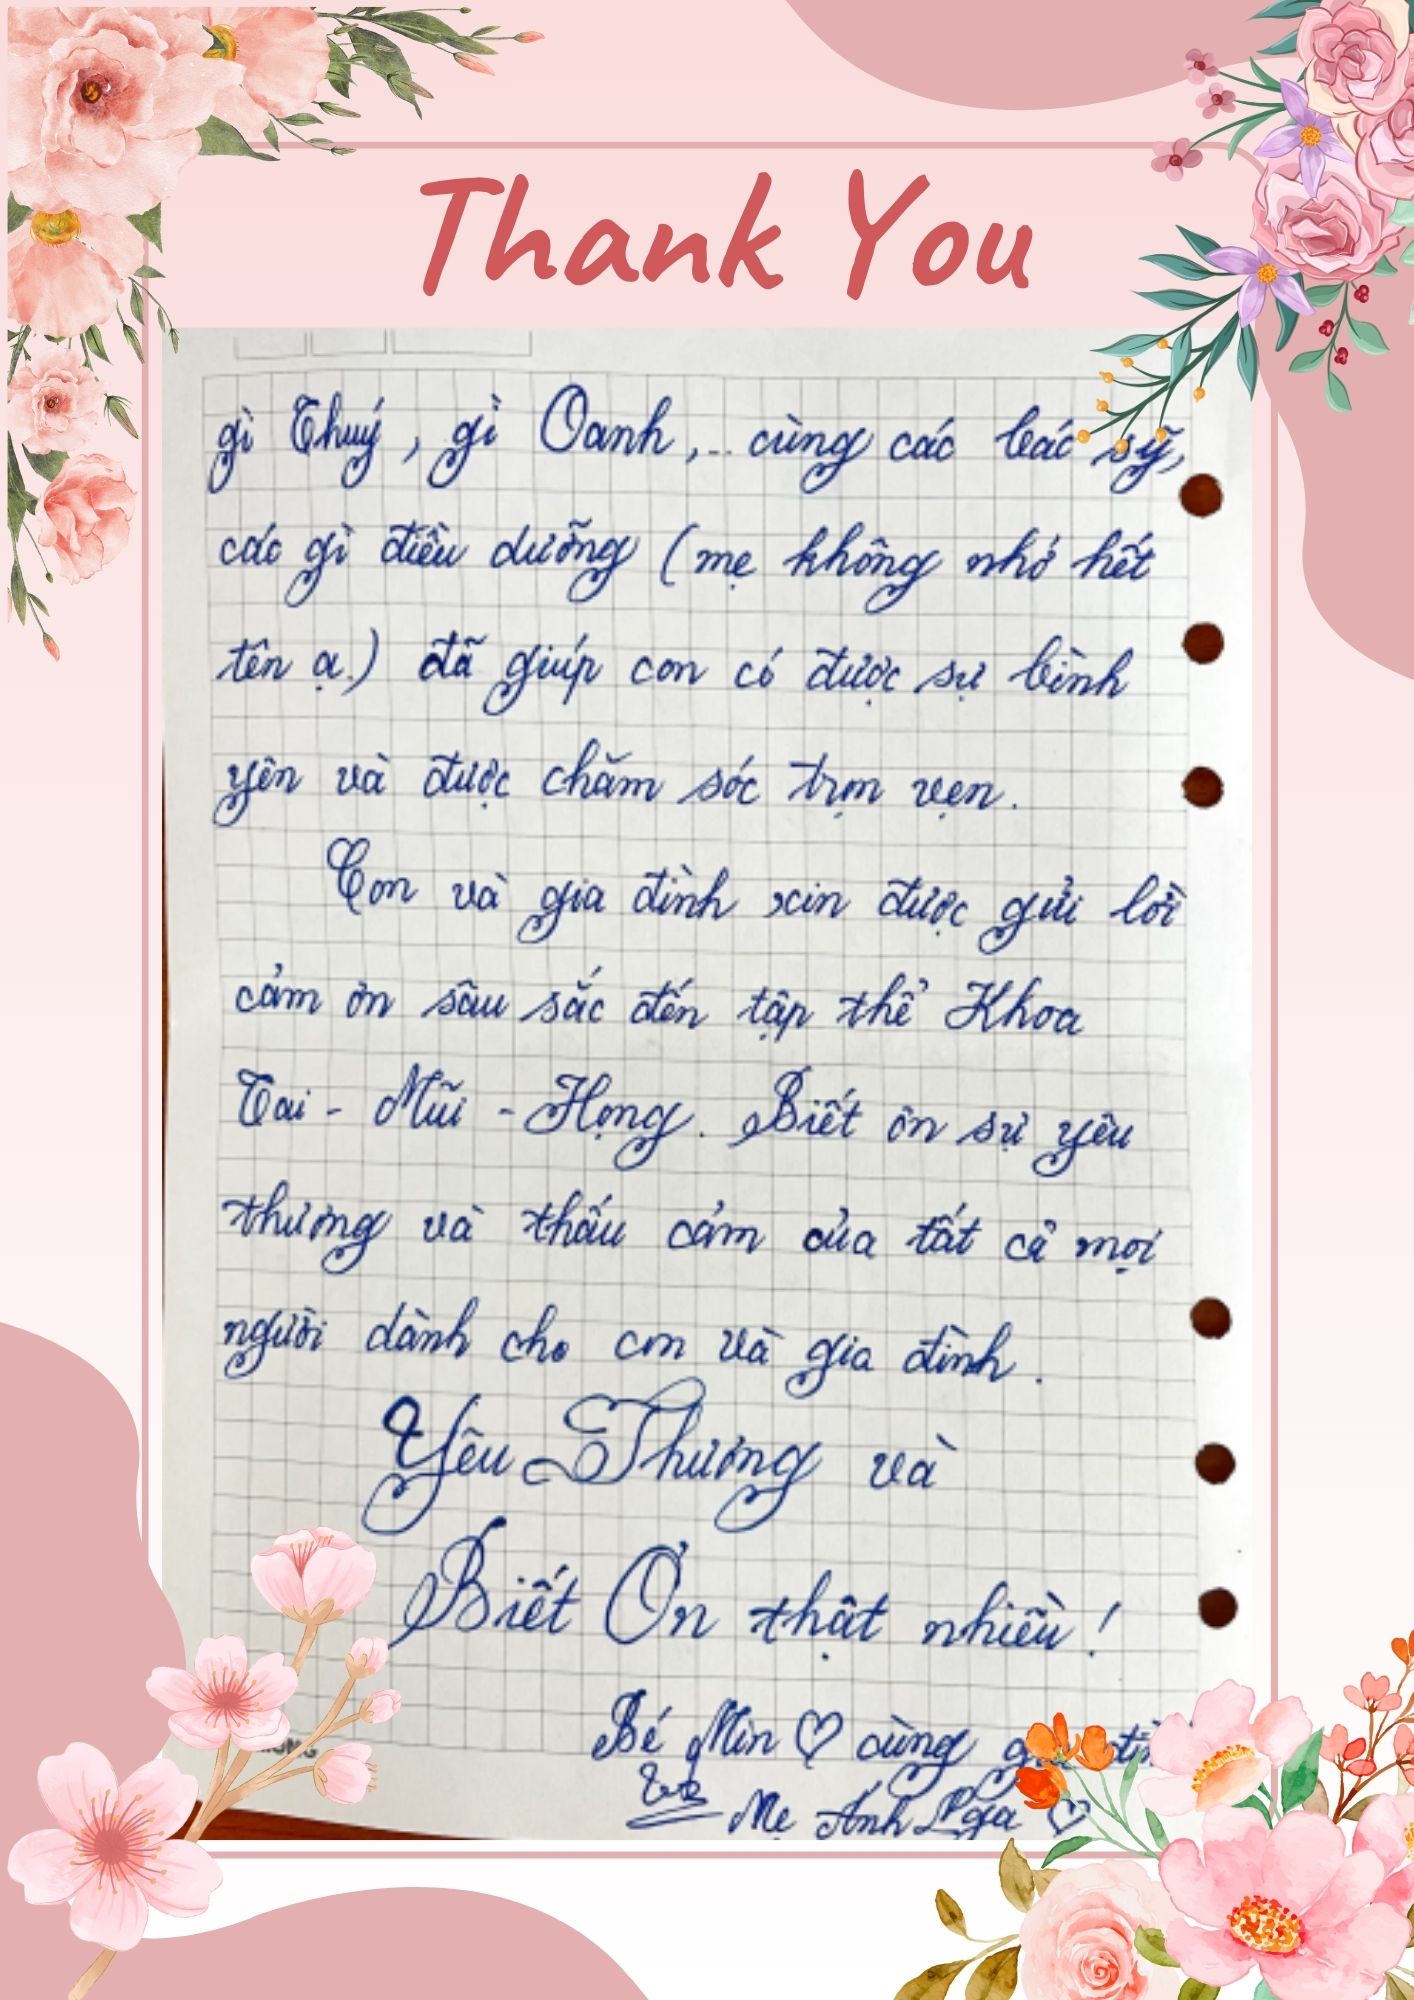 Thank You
gì Thuý, gì Oanh,... cùng các bác sỹ,
các gì điều dưỡng (mẹ không nhớ hết
tên ạ.) đã giúp con có được sự bình
yên và được chăm sóc trọn vẹn.
Con và gia đình xin được gửi lời
cảm ơn sâu sắc đến tập thể Khoa
Tai - Mũi - Họng. Biết ơn sự yêu
thương và thấu cảm của tất cả mọi
người dành cho con và gia đình.
Yêu Thương và
Biết Ơn thật nhiều!
Bé Min ♡ cùng
Mẹ Ánh Nga ♡